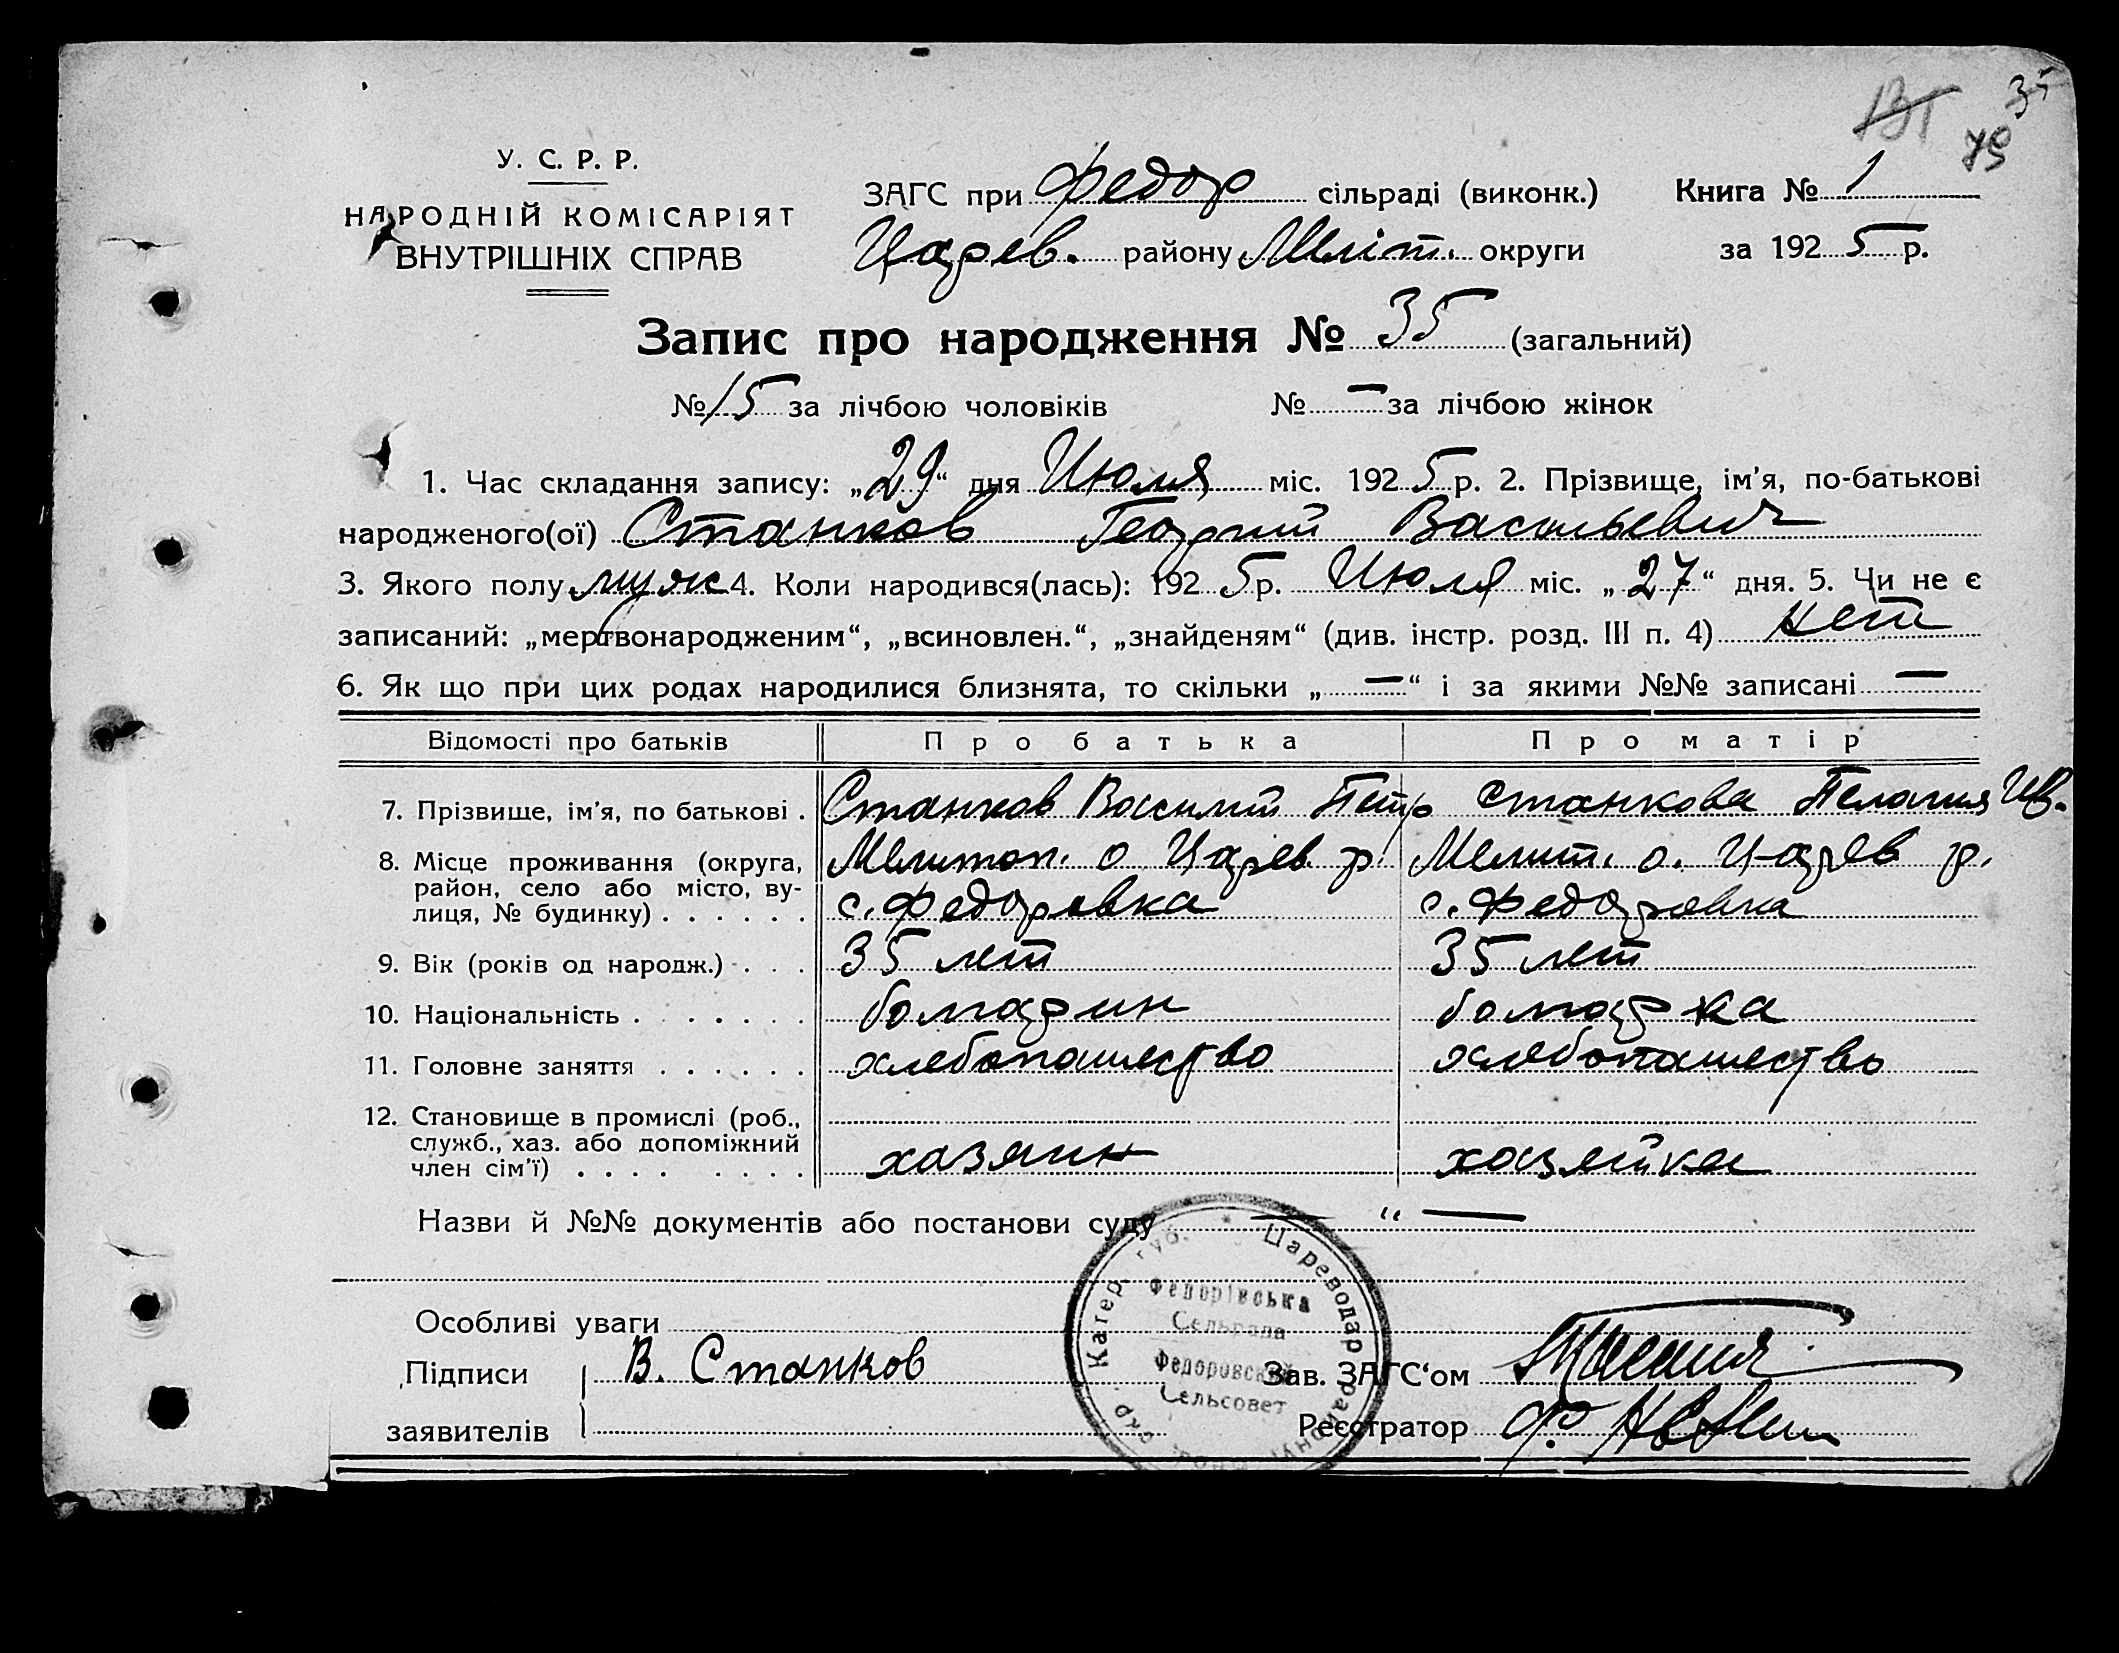 35
79
У. С. Р. Р.
НАРОДНІЙ КОМІСАРІЯТ
ВНУТРІШНІХ СПРАВ
ЗАГС при Федор сільраді (виконк.) Книга № 1
Царев. району Меліт. округи за 1925 р.
Запис про народження № 35 (загальний)
№ 15 за лічбою чоловіків № — за лічбою жінок
1. Час складання запису: „29“ дня Июля міс. 1925 р. 2. Прізвище, ім’я, по-батькові
народженого(ої) Станков Георгий Васильевич
3. Якого полу муж 4. Коли народився(лась): 1925 р. Июля міс. „27“ дня. 5. Чи не є
записаний: „мертвонародженим“, „всиновлен.“, „знайденям“ (див. інстр. розд. III п. 4) нет
6. Як що при цих родах народилися близнята, то скільки „—“ і за якими №№ записані —
Відомості про батьків Про батька Про матір
7. Прізвище, ім’я, по батькові . Станков Василий Петр Станкова Пелагия Ив.
8. Місце проживання (округа, Мелитоп. о Царев. р. Мелит. о. Царев р.
район, село або місто, ву-
лиця, № будинку) . . . . . . с. Федоровка с. Федоровка
9. Вік (років од народж.) . . . 35 лет 35 лет
10. Національність . . . . . . . болгарин болгарка
11. Головне заняття . . . . . . хлебопашество хлебопашество
12. Становище в промислі (роб.,
служб., хаз. або допоміжний
член сім’ї) . . . . . . . . хазяин хозяйка
Назви й №№ документів або постанови суду — “ —
Особливі уваги
Підписи В. Станков Зав. ЗАГС‘ом
заявителів Реєстратор Ф.
Катер. губ. Цареводар. району
Федорівська
Сельрада
Федоровский
Сельсовет